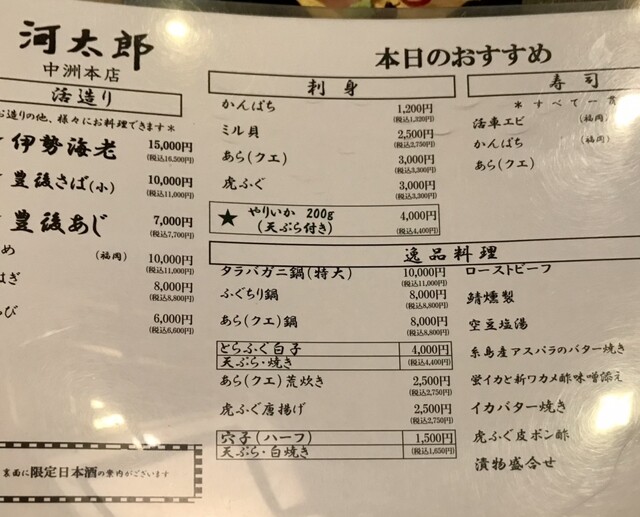 河太郎
中洲本店
活造り
お造りの他、様々にお料理できます＊
伊勢海老 15,000円
(税込16,500円)
豊後さば(小) 10,000円
(税込11,000円)
豊後あじ 7,000円
(税込7,700円)
め (福岡) 10,000円
(税込11,000円)
はぎ 8,000円
(税込8,800円)
び 6,000円
(税込6,600円)
裏面に限定日本酒の案内がございます
本日のおすすめ
刺身
かんぱち 1,200円
(税込1,320円)
ミル貝 2,500円
(税込2,750円)
あら(クエ) 3,000円
(税込3,300円)
虎ふぐ 3,000円
(税込3,300円)
★ やりいか 200g 4,000円
(天ぷら付き) (税込4,400円)
寿司
＊すべて一貫
活車エビ (福岡)
かんぱち (福岡)
あら(クエ)
逸品料理
タラバガニ鍋(特大) 10,000円
(税込11,000円)
ふぐちり鍋 8,000円
(税込8,800円)
あら(クエ)鍋 8,000円
(税込8,800円)
とらふぐ白子 4,000円
天ぷら・焼き (税込4,400円)
あら(クエ)荒炊き 2,500円
(税込2,750円)
虎ふぐ唐揚げ 2,500円
(税込2,750円)
穴子(ハーフ) 1,500円
天ぷら・白焼き (税込1,650円)
ローストビーフ
鯖燻製
空豆塩湯
糸島産アスパラのバター焼き
蛍イカと新ワカメ酢味噌添え
イカバター焼き
虎ふぐ皮ポン酢
漬物盛合せ